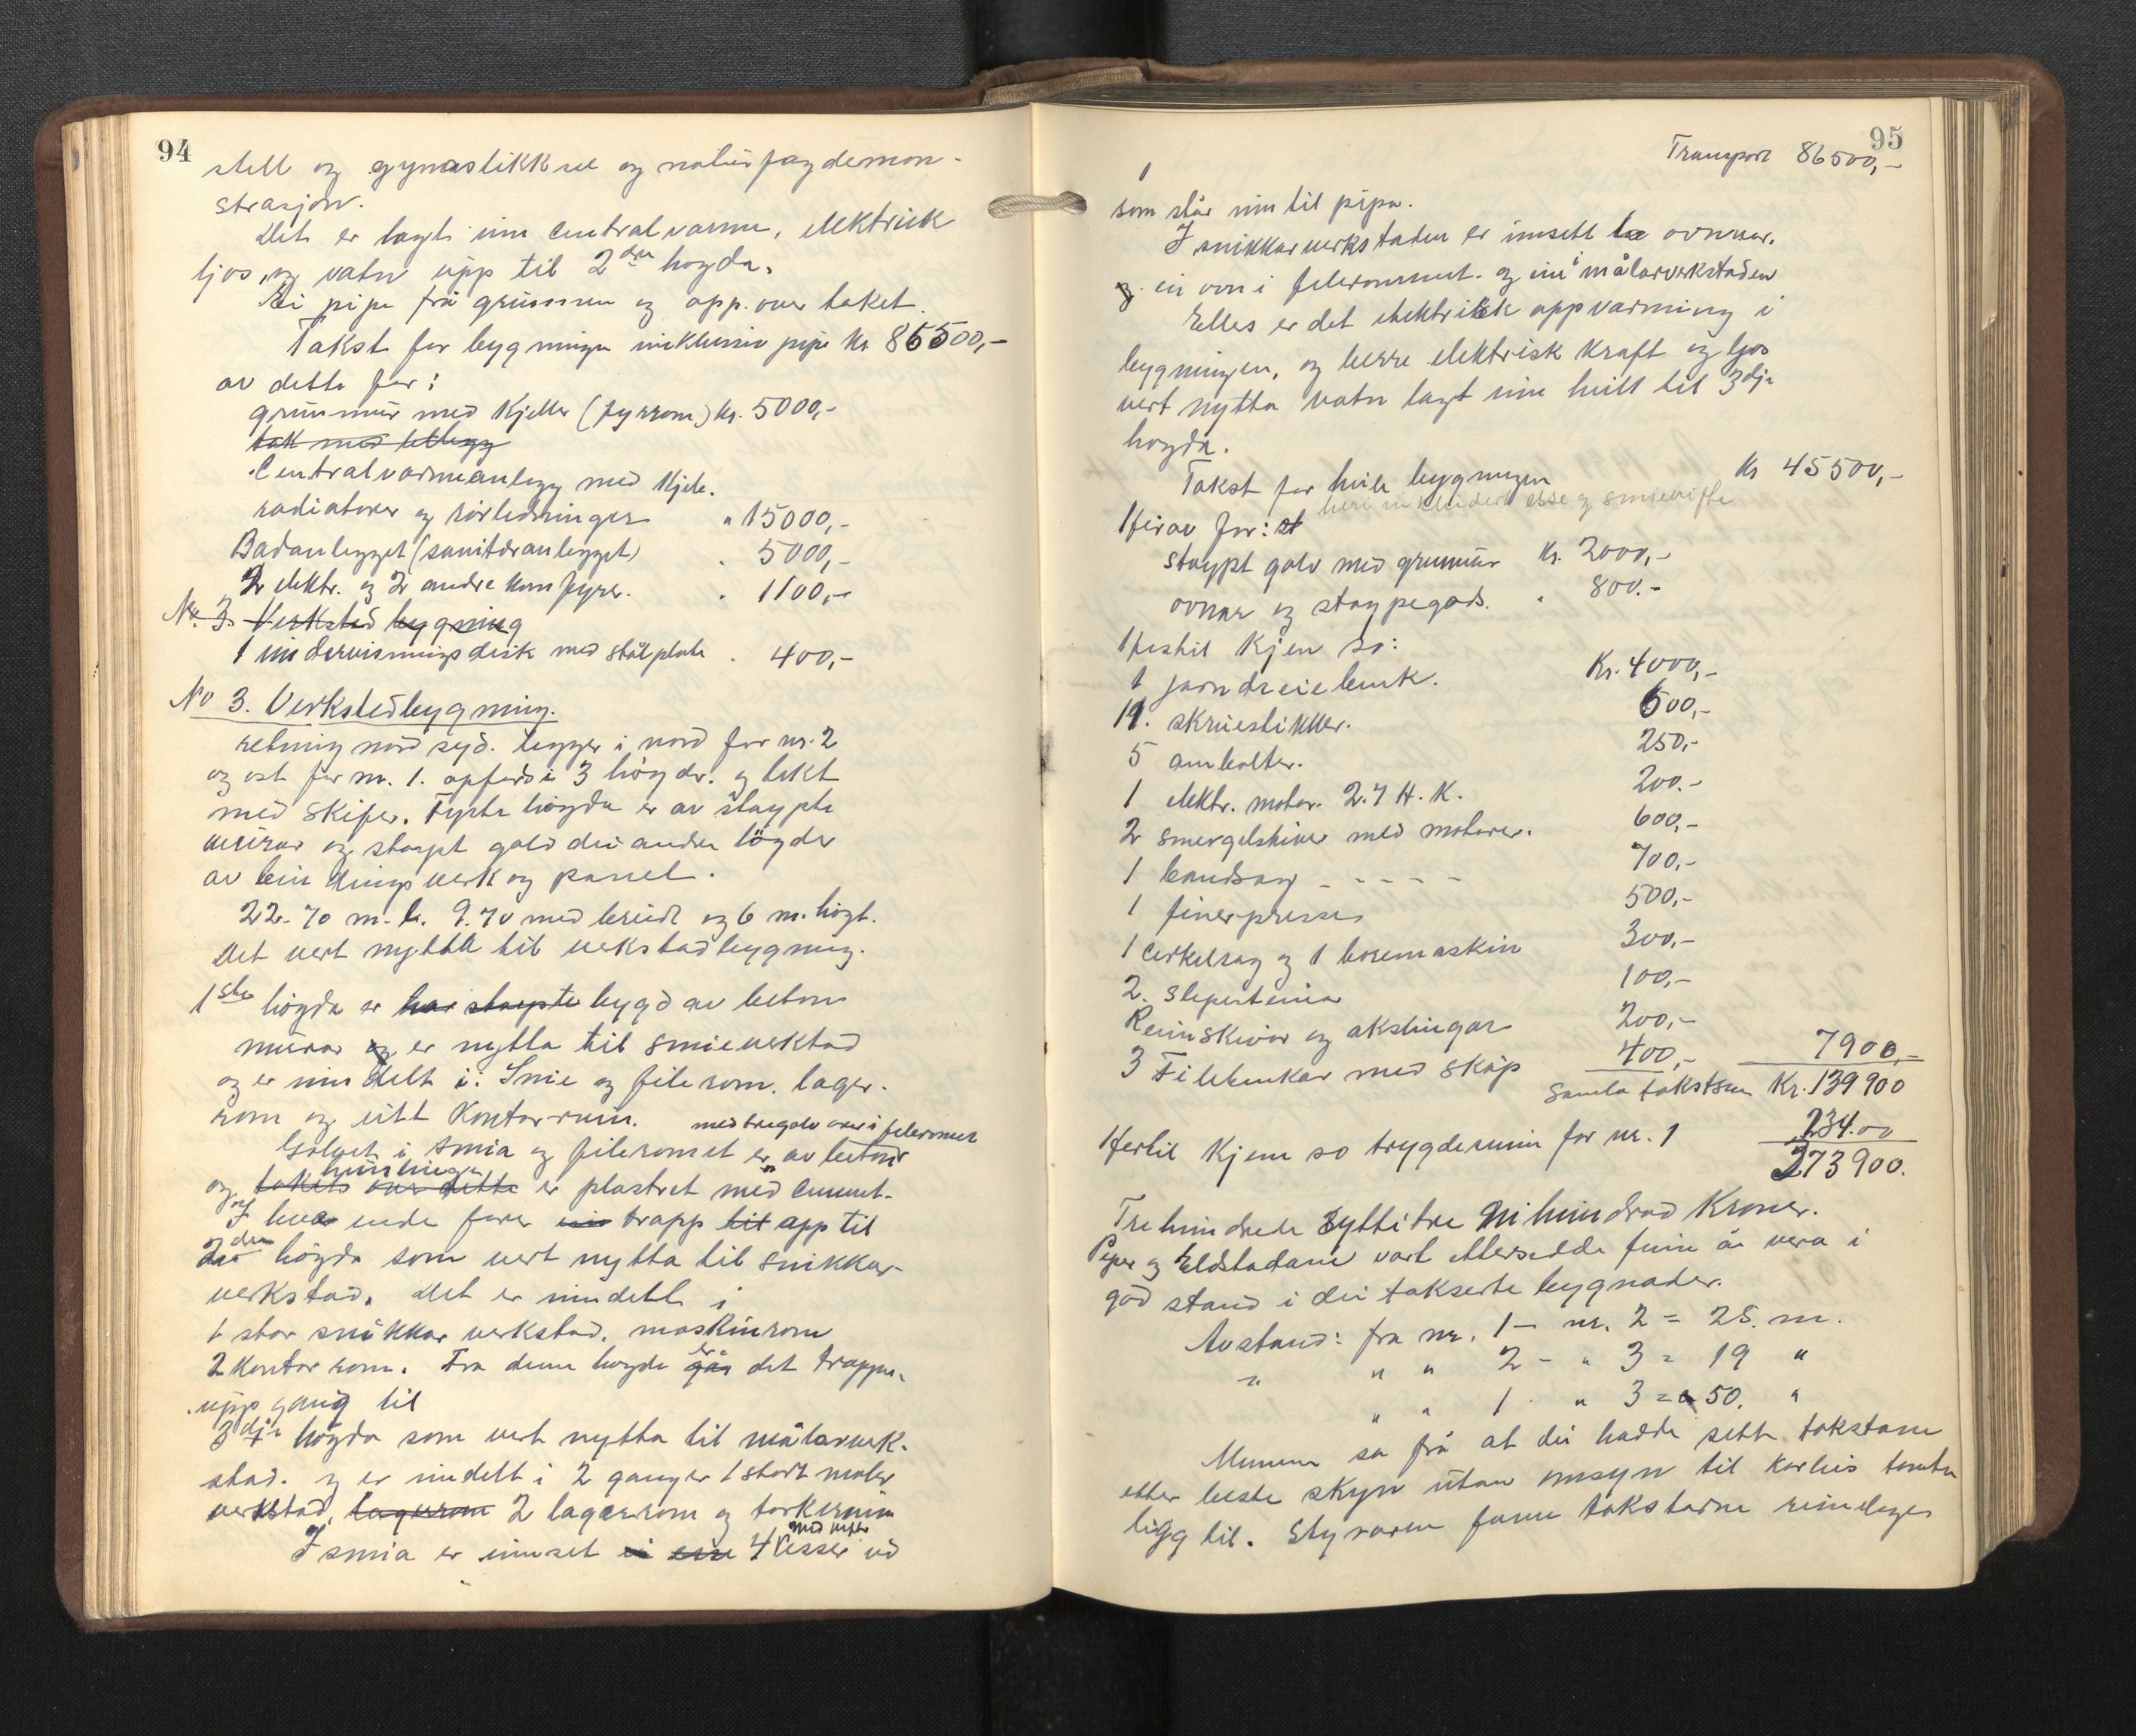 94
stell og gymnastikksal og naturfagdemon-
strasjon.
Det er lagt inn centralvarme, elektrisk
ljos, og vatn upp til 2dre høgda.
Ei pipe frå grunnen og opp over taket.
Takst for bygningen inklusiv pipe kr 86500,-
av dette for:
grunnmur med kjeller (fyrrom) kr. 5000,-
tak med
Centralvarmeanlegg med kjele,
radiatorer og rörledninger " 15000,-
Badanlegget (sanitæranlegget) . 5000,-
2 elektr. og 2 andre komfyrer. . 1100,-
No. 3. Verksted bygning
1 undervisningsdisk med stålplate . 400,-
No 3. Verkstedbygning.
retning nord syd. ligger i nord for nr. 2
og ost for nr. 1. opførd i 3 högder. og tekt
med skifer. Fyste högda er av stöypte
murar og støypt golv dei andre högder
av bindingsverk og panel.
22.70 m. l. 9.70 med breidt og 6 m. högt.
Det vert nytta til verkstadbygning.
1ste högda er har støypte bygd av betong
murar og er nytta til smieverkstad
og er inndelt i: Smie og filerom, lager-
rom og eitt Kontorrum. med tregolv over i filerommet
Golvet i smia og filerommet er av betong
og takets over dette er plastret med cement-
I hver ende fører ein trapp til opp til
2dre högda som vert nytta til snikkar-
verkstad. Det er inndelt i
1 stor snikkar verkstad, maskinrom
2 kontor rom. Fra denne høgda går er det trappe-
uppgang til
3dje högda som vert nytta til målarverk-
stad. og er inndelt i 2 ganger 1 stort maler
verkstad, lagerrom 2 lagerrom og torkerum
I smia er innset ei esse 4 esser med vifte ved
95
Transport 86500,-
som står inn til pipa.
I snikkarverkstaden er innsett to ovnar.
og ein ovn i filerommet. og ein i målarverkstaden
Elles er det elektrisk oppvarming i
bygningen, og berre elektrisk kraft og ljos
vert nytta vatn lagt inn heilt til 3dje
høgda.
Takst for heile bygningen Kr 45500,-
heri inkludert esse og smievifte
Herav for: st
støypt golv med grunnmur Kr. 2000,-
ovnar og støypegods. " 800.-
Hertil kjem so:
1 jarn dreiebenk. Kr. 4000,-
11. skruestikker. 600,-
5 ambolter. 250,-
1 elektr. motor. 2.7 H. K. 200.-
2 smergelskiver med motorer. 600,-
1 bandsag - - - - - 700,-
1 finerpresse 500,-
1 cirkelsag og 1 boremaskin 300,-
2. slipesteinar 100,-
Reimskivor og akslingar 200,-
3 Filebenkar med skåp 400,- 7900,-
Samla takstsum Kr. 139900
Hertil kjem so trygdesum for nr. 1 234.00
373900.
Trehundrede syttitre nihundrad Kroner.
Piper og Eldstadane vart ettersedde funne å vera i
god stand i dei takserte bygnader.
Avstand: fra nr. 1 - nr. 2 = 25. m.
" " " 2 - " 3 = 19 "
" " 1 . " 3 = 50. "
Mennene sa frå at dei hadde sett takstane
etter beste skyn utan omsyn til korleis tomta
ligg til. Styraren fann takstarne rimelege